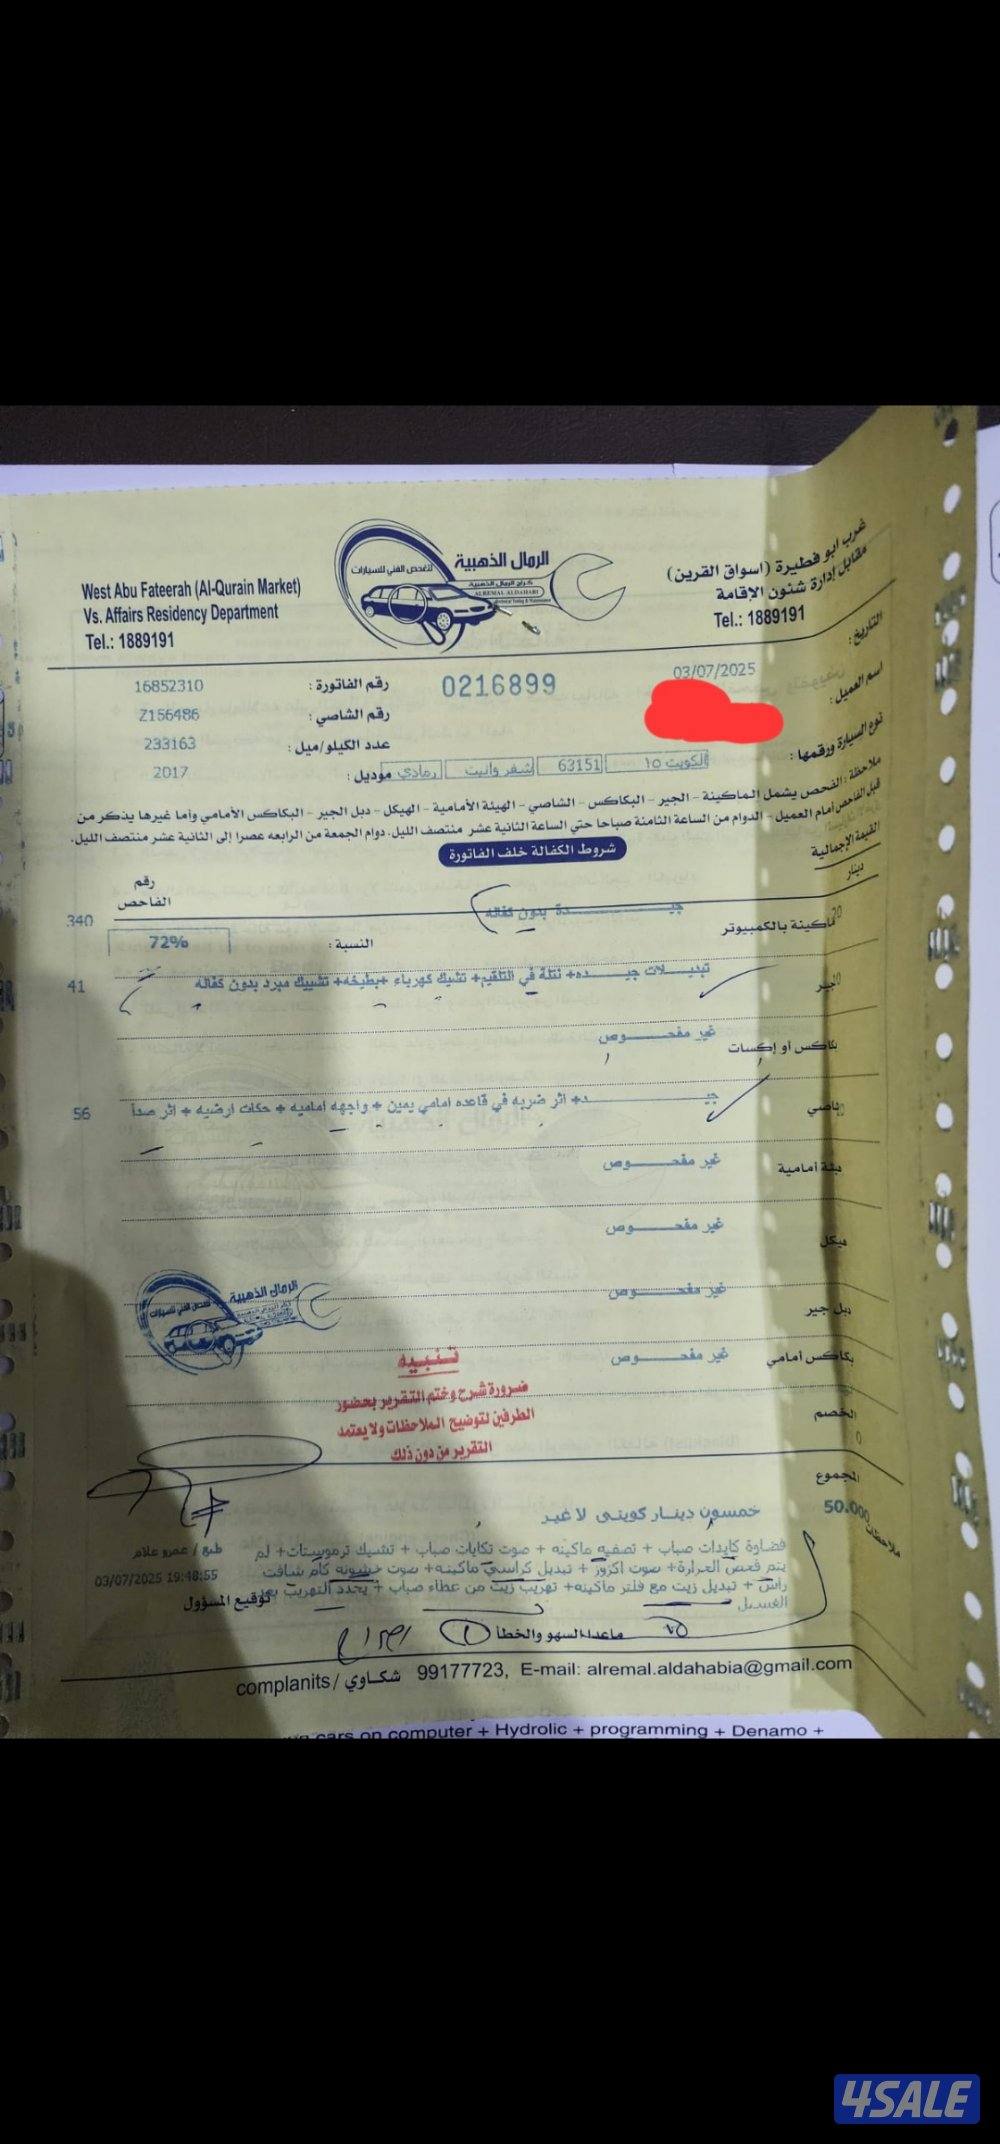 غرب ابو فطيرة (اسواق القرين)
مقابل إدارة شئون الإقامة
Tel.: 1889191
الرمال الذهبية
للفحص الفني للسيارات
كراج الرمال الذهبية
ALREMAL ALDAHABI
West Abu Fateerah (Al-Qurain Market)
Vs. Affairs Residency Department
Tel.: 1889191
التاريخ: 03/07/2025
0216899
رقم الفاتورة : 16852310
اسم العميل :
رقم الشاصي : Z156486
عدد الكيلو/ميل : 233163
نوع السيارة ورقمها : الكويت ١٥ 63151 شفر وانيت رمادي
موديل : 2017
ملاحظة : الفحص يشمل الماكينة - الجير - البكاكس - الشاصي - الهيئة الأمامية - الهيكل - دبل الجير - البكاكس الأمامي وأما غيرها يذكر من
قبل الفاحص أمام العميل - الدوام من الساعة الثامنة صباحا حتي الساعة الثانية عشر منتصف الليل. دوام الجمعة من الرابعه عصرا إلى الثانية عشر منتصف الليل.
شروط الكفالة خلف الفاتورة
القيمة الإجمالية
دينار
رقم
الفاحص
ماكينة بالكمبيوتر 20 جيـــدة بدون كفاله 340
النسبة : 72%
جير 10 تبديـــلات جيـــده+ نتلة في التلقيم+ تشيك كهرباء +بطيخه+ تشييك مبرد بدون كفاله 41
بكاكس أو إكسات غير مفحـــوص
شاصي جيـــد+ اثر ضربه في قاعده امامي يمين + واجهه اماميه + حكات ارضيه + اثر صدأ 56
هيئة أمامية غير مفحـــوص
هيكل غير مفحـــوص
دبل جير غير مفحـــوص
بكاكس أمامي غير مفحـــوص
الرمال الذهبية
تنبيه
ضرورة شرح وختم التقرير بحضور
الطرفين لتوضيح الملاحظات ولا يعتمد
التقرير من دون ذلك
الخصم 0
المجموع 50.000
خمسون دينـار كويتـى لا غير
ملاحظات
فضاوة كايدات صباب + تصفيه ماكينه + صوت تكايات صباب + تشيك ترموستات+ لم
يتم فحص الحرارة+ صوت اكزوز + تبديل كراسي ماكينه+ صوت خشونه كام شافت
راس + تبديل زيت مع فلتر ماكينه+ تهريب زيت من غطاء صباب + يحدد التهريب بعد
الغسيل
طبع / عمرو علام
03/07/2025 19:48:55
توقيع المسؤول
ماعدا السهو والخطأ
complanits/ شكاوي 99177723, E-mail: alremal.aldahabia@gmail.com
cars on computer + Hydrolic + programming + Denamo +
4SALE